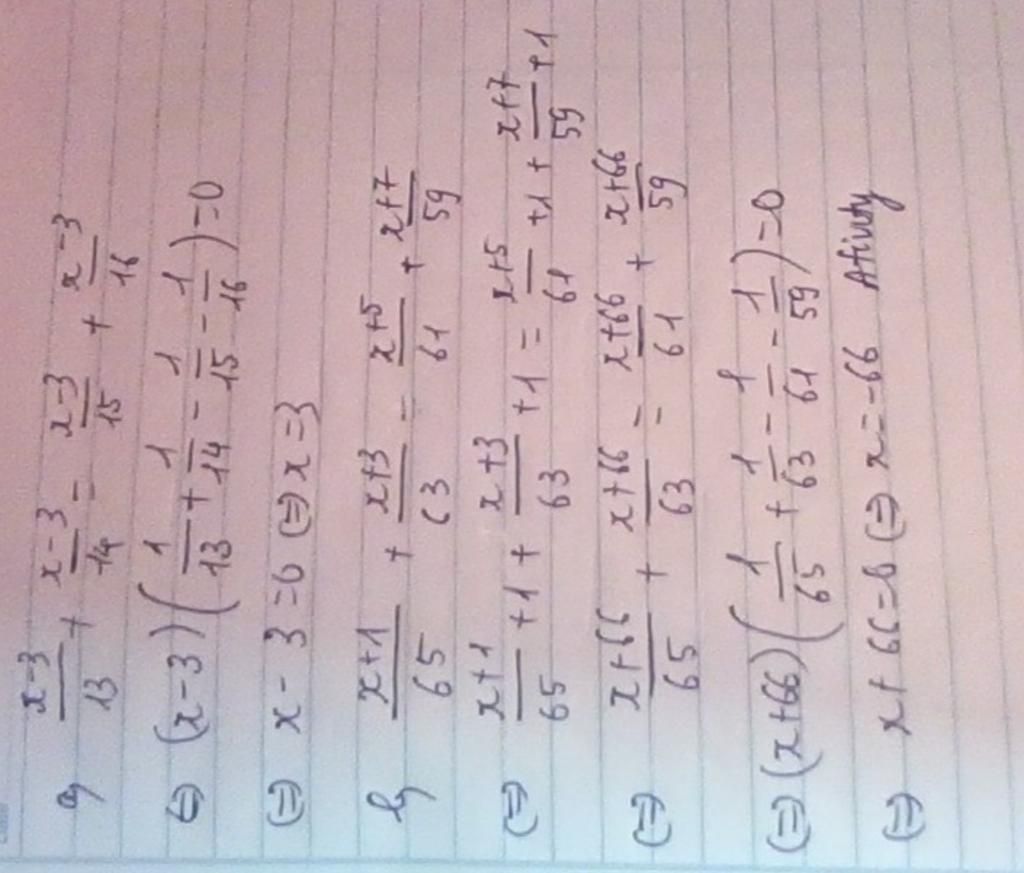 a) \frac{x-3}{13} + \frac{x-3}{14} = \frac{x-3}{15} + \frac{x-3}{16}
⇔ (x-3)(\frac{1}{13} + \frac{1}{14} - \frac{1}{15} - \frac{1}{16}) = 0
⇔ x - 3 = 0 ⇔ x = 3
b) \frac{x+1}{65} + \frac{x+3}{63} = \frac{x+5}{61} + \frac{x+7}{59}
⇔ \frac{x+1}{65} + 1 + \frac{x+3}{63} + 1 = \frac{x+5}{61} + 1 + \frac{x+7}{59} + 1
⇔ \frac{x+66}{65} + \frac{x+66}{63} = \frac{x+66}{61} + \frac{x+66}{59}
⇔ (x+66)(\frac{1}{65} + \frac{1}{63} - \frac{1}{61} - \frac{1}{59}) = 0
⇔ x + 66 = 0 ⇔ x = -66